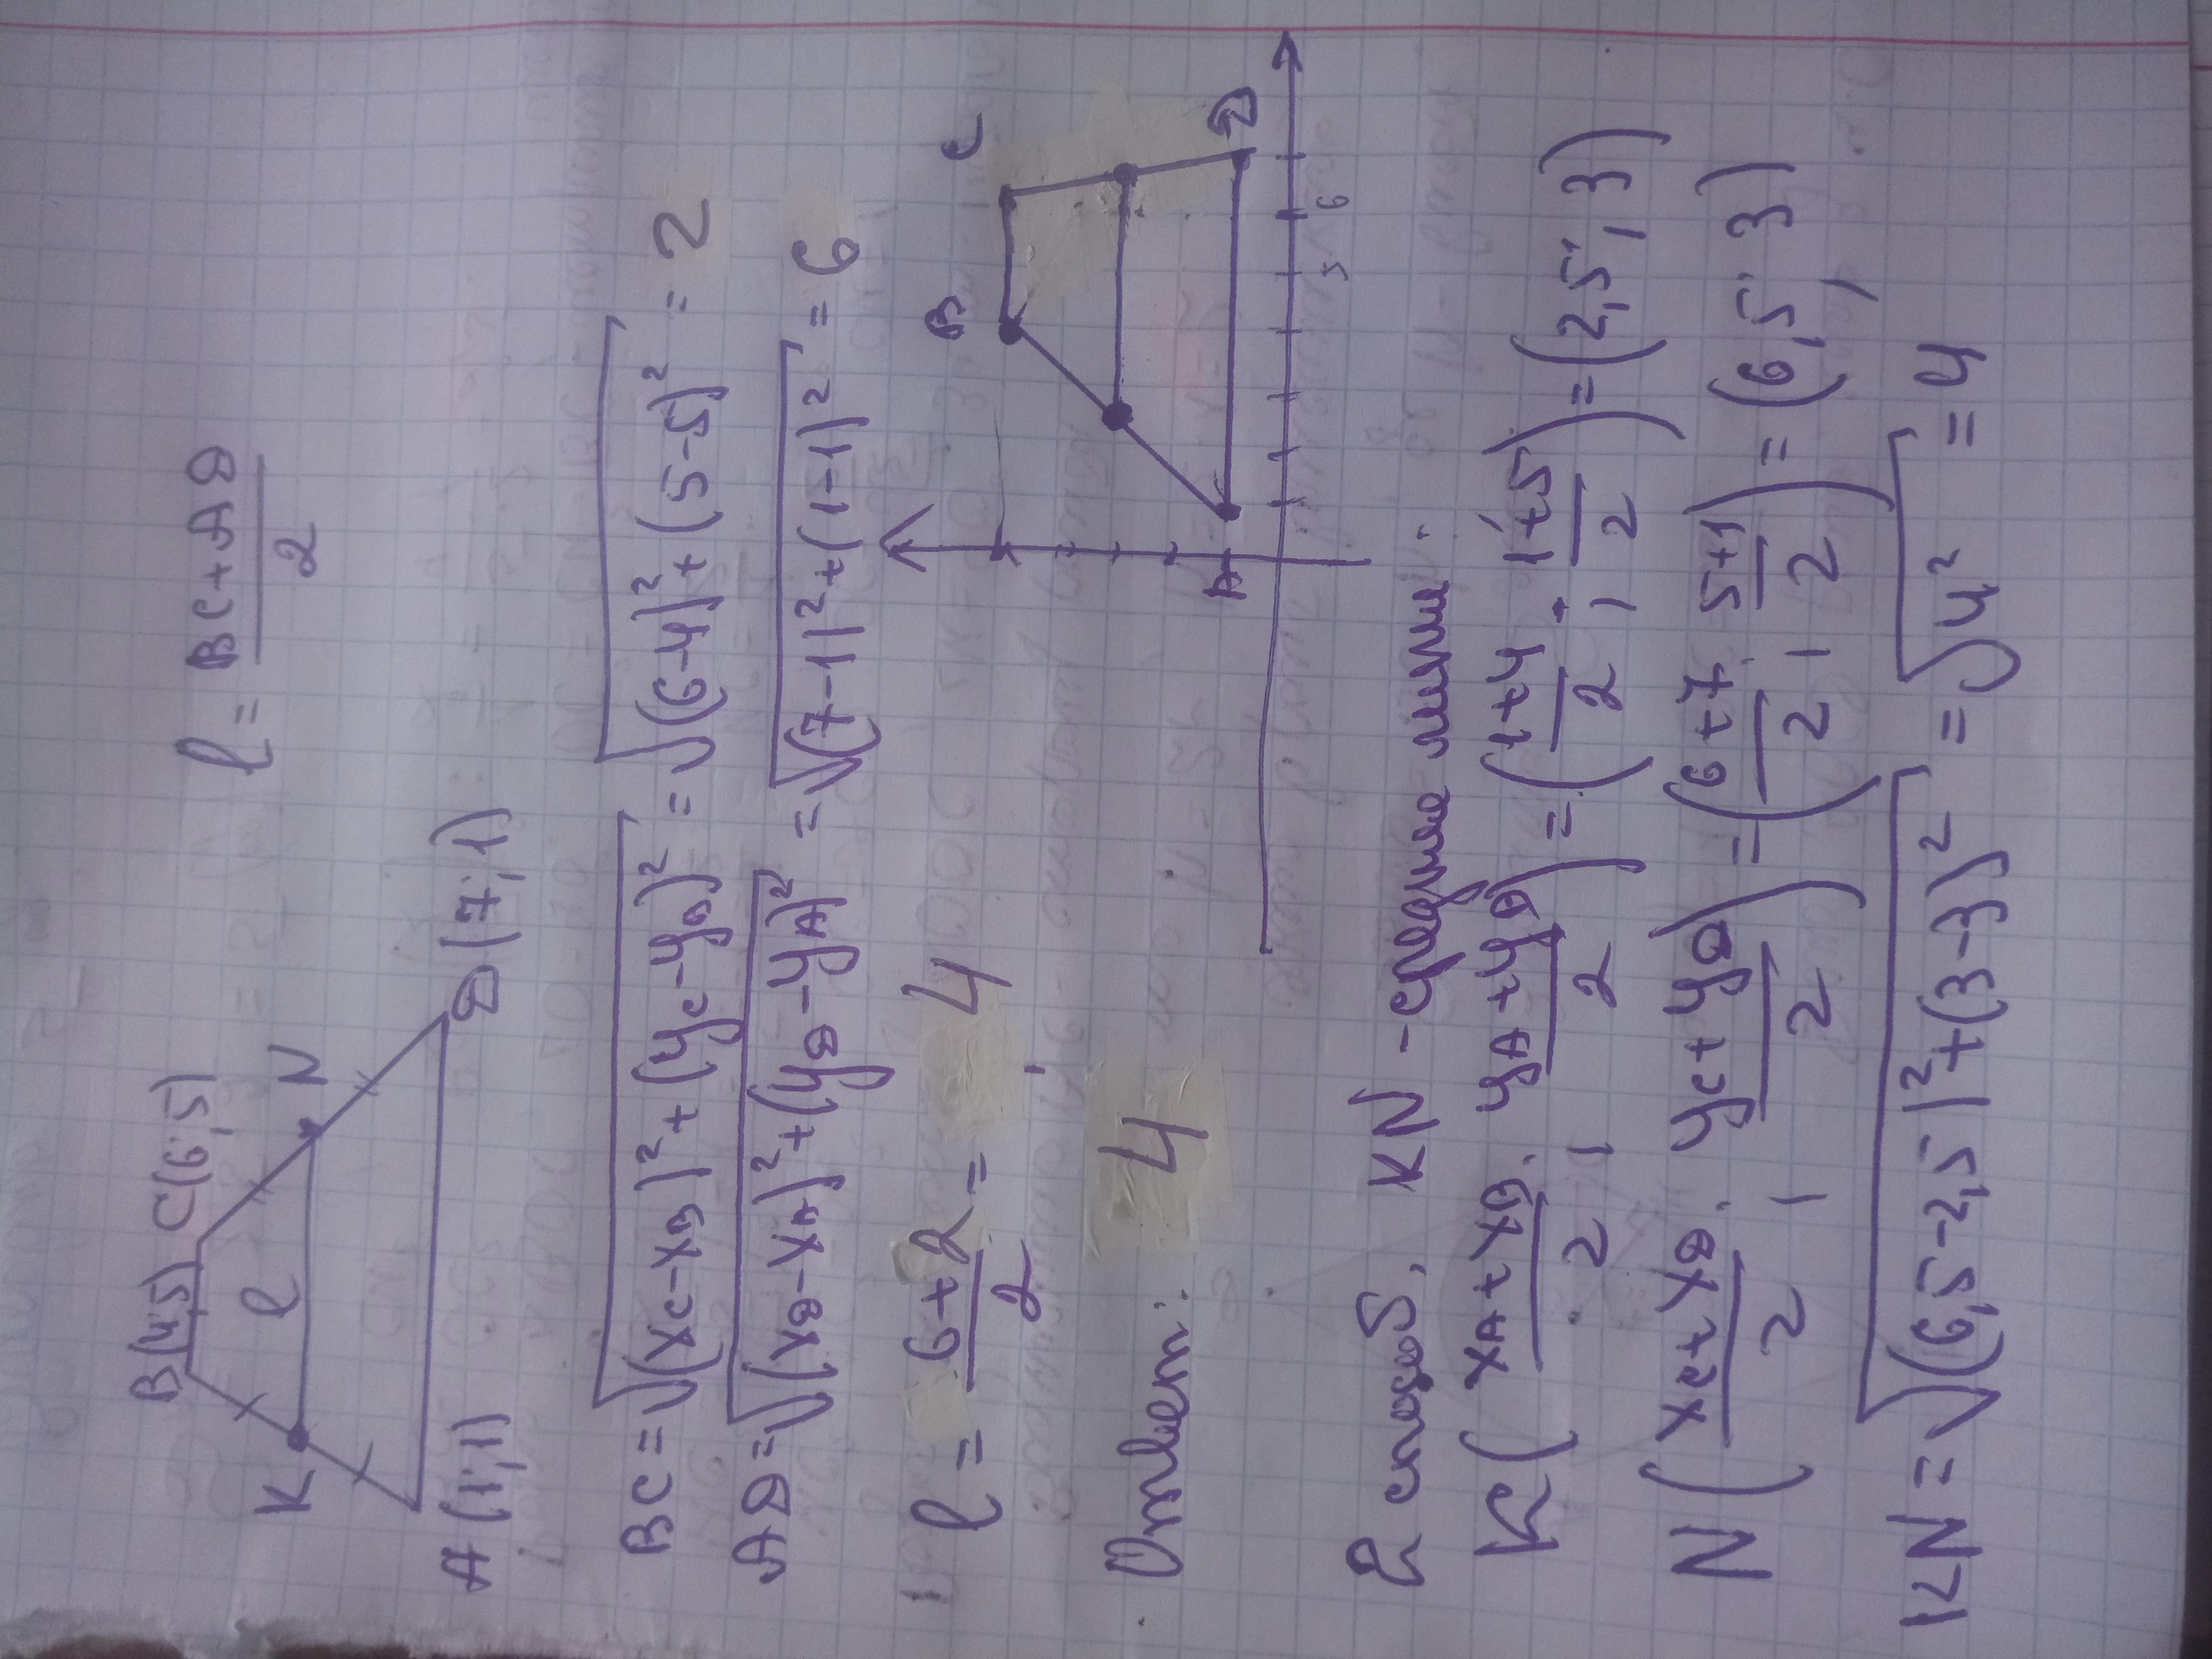 B(4;5) C(6;5)
K
l
N
A(1;1)
D(7;1)
l = (BC+AD)/2
BC = √((xC-xB)²+(yC-yB)²) = √((6-4)²+(5-5)²) = 2
AD = √((xD-xA)²+(yD-yA)²) = √((7-1)²+(1-1)²) = 6
l = (6+2)/2 = 4
Ответ: 4
B
C
A
D
5 6
2 способ. KN - средние линии.
K((xA+xB)/2; (yA+yB)/2) = ((1+4)/2; (1+5)/2) = (2,5; 3)
N((xC+xD)/2; (yC+yD)/2) = ((6+7)/2; (5+1)/2) = (6,5; 3)
KN = √((6,5-2,5)²+(3-3)²) = √4² = 4